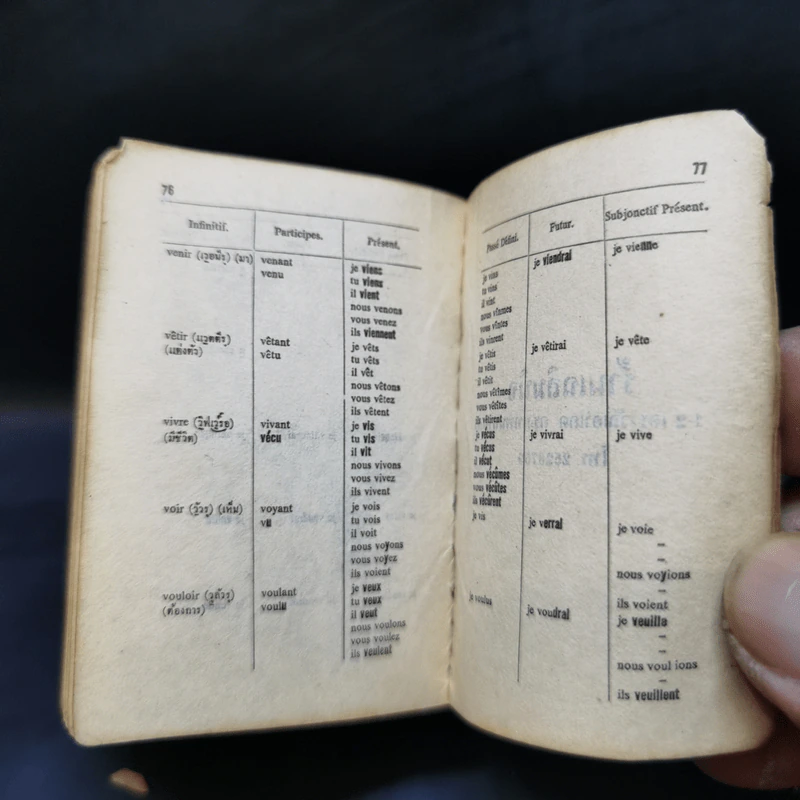 76
Infinitif. Participes. Présent.
venir (เวอนีร) (มา) venant je viens
venu tu viens
il vient
nous venons
vous venez
ils viennent
vêtir (แวตตีร) vêtant je vêts
(แต่งตัว) vêtu tu vêts
il vêt
nous vêtons
vous vêtez
ils vêtent
vivre (วีฟเวร์อ) vivant je vis
(มีชีวิต) vécu tu vis
il vit
nous vivons
vous vivez
ils vivent
voir (วัวร) (เห็น) voyant je vois
vu tu vois
il voit
nous voyons
vous voyez
ils voient
vouloir (วูลัวร) voulant je veux
(ต้องการ) voulu tu veux
il veut
nous voulons
vous voulez
ils veulent
77
Passé Défini. Futur. Subjonctif Présent.
je vins je viendrai je vienne
tu vins
il vint
nous vînmes
vous vîntes
ils vinrent
je vêtis je vêtirai je vête
tu vêtis
il vêtit
nous vêtîmes
vous vêtîtes
ils vêtirent
je vécus je vivrai je vive
tu vécus
il vécut
nous vécûmes
vous vécûtes
ils vécûrent
je vis je verrai je voie
–
–
nous voyions
–
ils voient
je voulus je voudrai je veuille
–
–
nous voul ions
–
ils veuillent